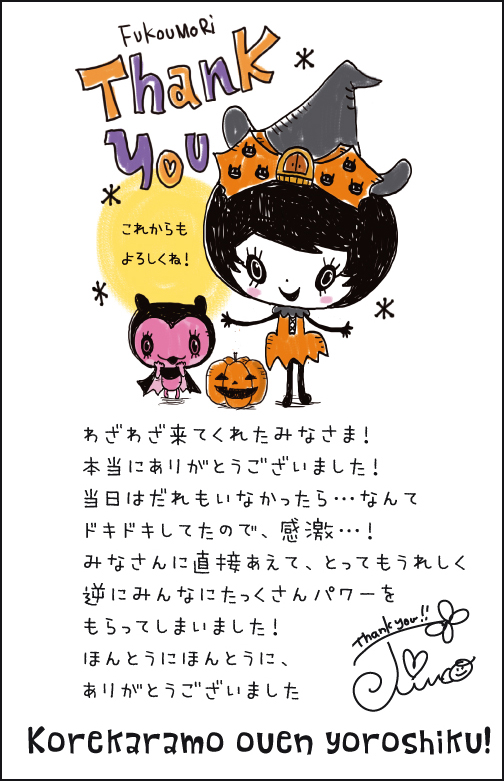 FUKOUMORi
Thank
you
これからも
よろしくね！
わざわざ来てくれたみなさま！
本当にありがとうございました！
当日はだれもいなかったら…なんて
ドキドキしてたので、感激…！
みなさんに直接あえて、とってもうれしく
逆にみんなにたっくさんパワーを
もらってしまいました！
ほんとうにほんとうに、
ありがとうございました
Thank you!!
Korekaramo ouen yoroshiku!